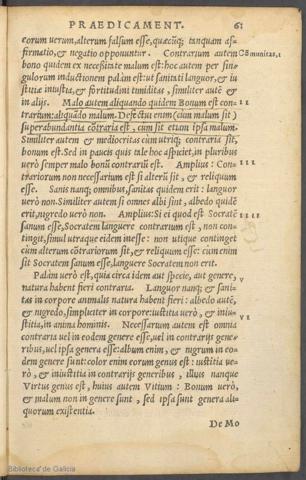 PRAEDICAMENT. 61
eorum uerum, alterum falsum esse, quæcũq; tanquam af-
firmatio, & negatio opponuntur. Contrarium autem Cõmunitas, 1
bono quidem ex necessitate malum est: hoc autem per sin
gulorum inductionem palàm est: ut sanitati languor, & iu
stitiæ iniustia, & fortitudini timiditas, similiter autẽ &
in alijs. Malo autem aliquando quidem Bonum est con- II
trarium: aliquãdo malum. Defectus enim (cùm malum sit)
superabundantia cõtraria est, cùm sit etiam ipsa malum.
Similiter autem & mediocritas cum utriq; contraria sit,
bonum est. Sed in paucis quis tale hoc aspiciet, in pluribus
uerò semper malo bonũ contrariũ est. Amplius: Con- III
trariorum non necessarium est si alterũ sit, & reliquum
esse. Sanis nanq; omnibus, sanitas quidem erit: languor
uerò non. Similiter autem si omnes albi sint, albedo quidẽ
erit, nigredo uerò non. Amplius: Si ei quod est Socratẽ IIII
sanum esse, Socratem languere contrarium est, non con-
tingit, simul utraque eidem inesse: non utique continget
cum alterum cõtrariorum sit, & reliquum esse: cùm enim
sit Socratem sanum esse, languere Socratem non erit.
Palàm uerò est, quia circa idem aut specie, aut genere, V
natura habent fieri contraria. Languor nanq; & sani-
tas in corpore animalis natura habent fieri: albedo autẽ,
& nigredo, simpliciter in corpore: iustitia uerò, & iniu- VI
stitia, in anima hominis. Necessarium autem est omnia
contraria uel in eodem genere esse, uel in contrarijs gene-
ribus, uel ipsa genera esse: album enim, & nigrum in eo-
dem genere sunt: color enim eorum genus est: iustitia ue-
rò, & iniustitia in contrarijs generibus, illius nanque
Virtus genus est, huius autem Vitium: Bonum uerò,
& malum non in genere sunt, sed ipsa sunt genera ali-
quorum existentia.
De Mo
Biblioteca de Galicia